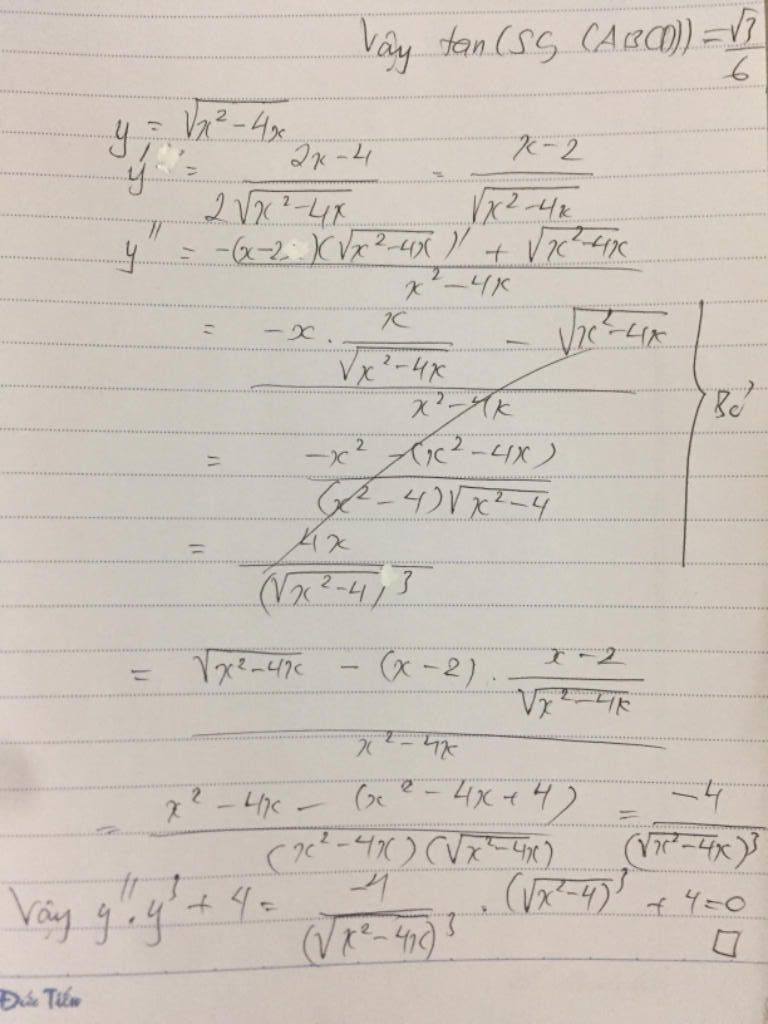 Vậy tan(SG, (ABCD)) = √3/6
y = √(x² - 4x)
y' = (2x - 4)/(2√(x² - 4x)) = (x - 2)/√(x² - 4x)
y'' = (-(x - 2)(√(x² - 4x))' + √(x² - 4x))/(x² - 4x)
= (-x . x/√(x² - 4x) - √(x² - 4x))/(x² - 4x)
Bỏ
= (-x² - (x² - 4x))/((x² - 4)√(x² - 4))
= 4x/(√(x² - 4))³
= (√(x² - 4x) - (x - 2) . (x - 2)/√(x² - 4x))/(x² - 4x)
= (x² - 4x - (x² - 4x + 4))/((x² - 4x)(√(x² - 4x))) = -4/(√(x² - 4x))³
Vậy y'' . y³ + 4 = -4/(√(x² - 4x))³ . (√(x² - 4))³ + 4 = 0
□
Đức Tiến